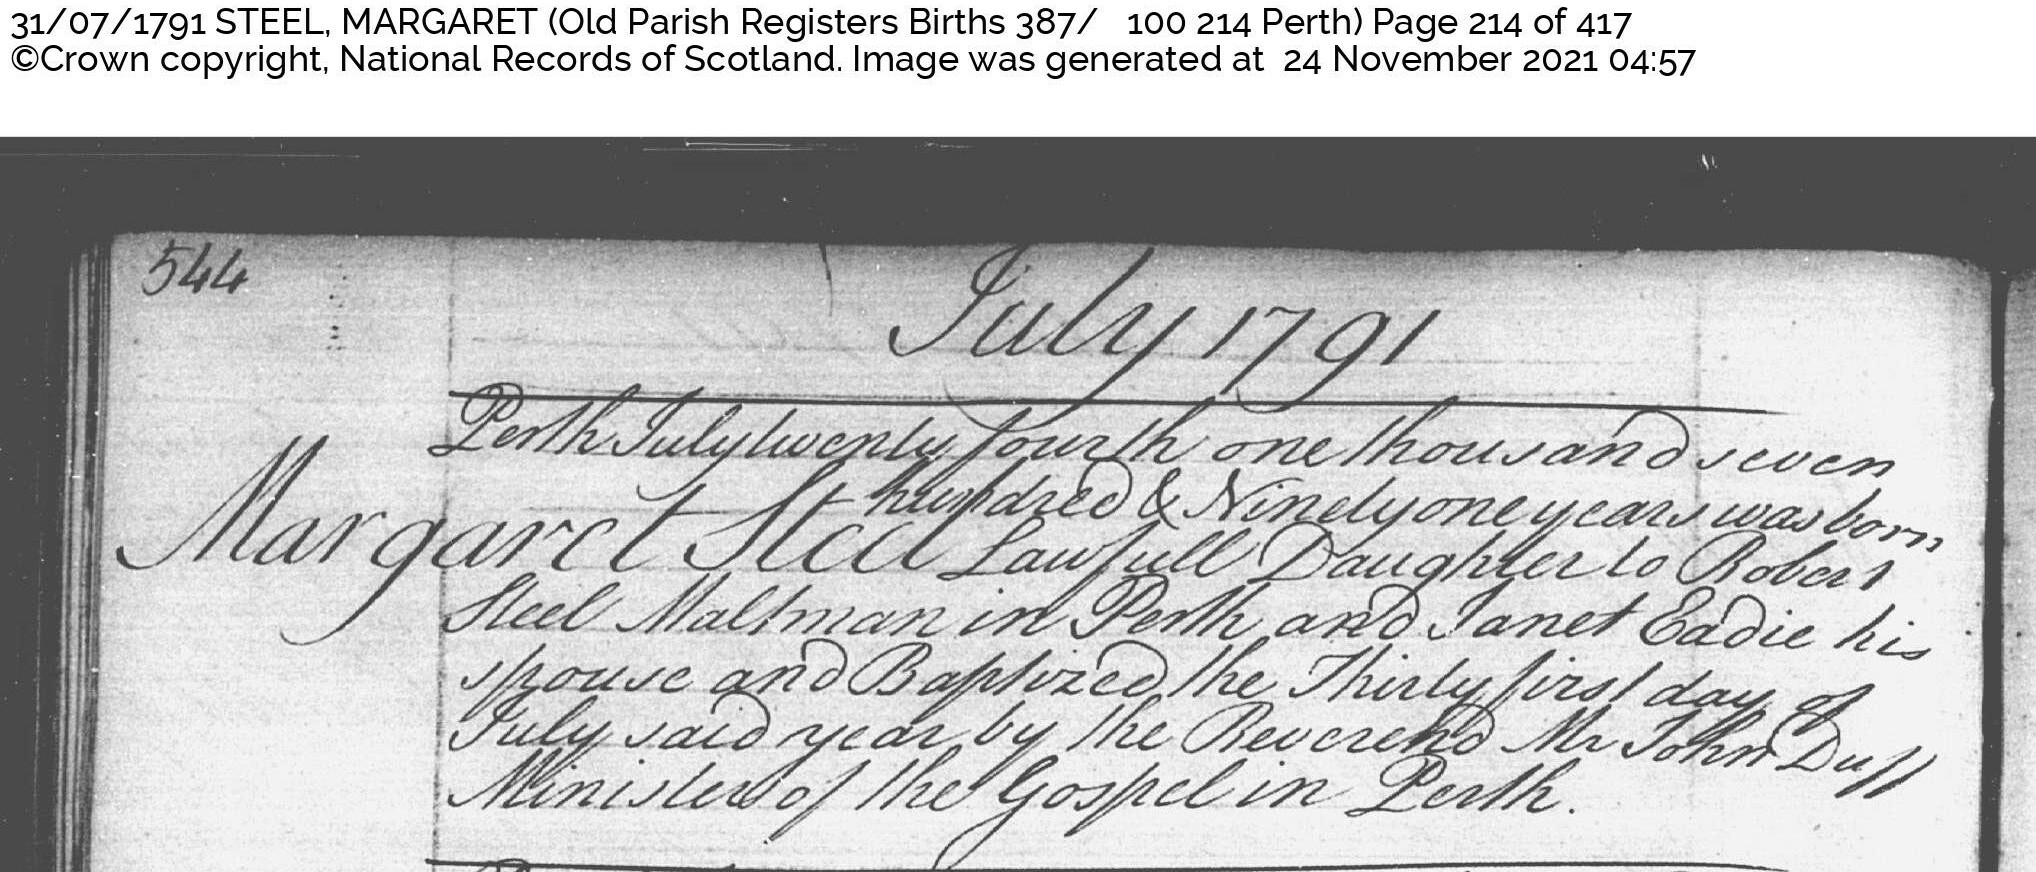 31/07/1791 STEEL, MARGARET (Old Parish Registers Births 387/ 100 214 Perth) Page 214 of 417
©Crown copyright, National Records of Scotland. Image was generated at 24 November 2021 04:57
544
July 1791
Perth July twenty fourth one thousand seven
hundred & Ninety one years was born
Margaret Steel Lawfull Daughter to Robert
Steel Maltman in Perth and Janet Eadie his
spouse and Baptized the Thirty first day of
July said year by the Reverend Mr John Duff
Minister of the Gospel in Perth.